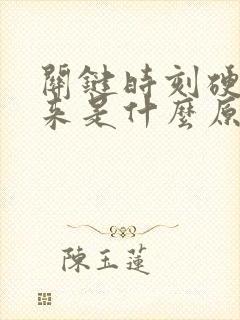 關鍵時刻硬
來是什麼原
陳玉蓮